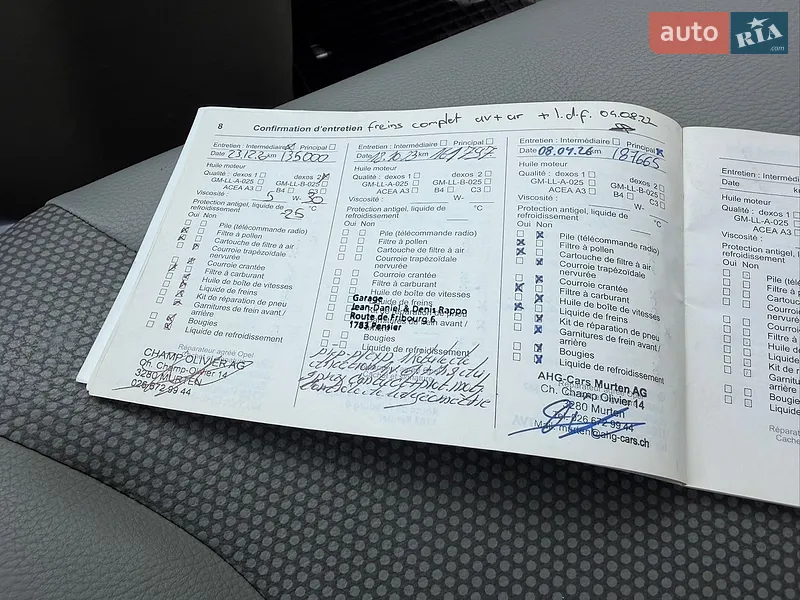 auto RIA .com
8 Confirmation d'entretien freins complet av+ar + l.d.f. 04.08.22
Entretien: Intermédiaire Principal
Date km 135000
Huile moteur
Qualité : dexos 1 dexos 2
GM-LL-A-025 GM-LL-B-025
ACEA A3 B4
Viscosité : 5 W- 30
Protection antigel, liquide de
refroidissement -25 °C
Oui Non
Pile (télécommande radio)
Filtre à pollen
Cartouche de filtre à air
Courroie trapézoïdale
nervurée
Courroie crantée
Filtre à carburant
Huile de boîte de vitesses
Liquide de freins
Kit de réparation de pneu
Garnitures de frein avant /
arrière
Bougies
Liquide de refroidissement
Réparateur agréé Opel
CHAMP-OLIVIER AG
Ch. Champ-Olivier 14
3280 MURTEN
026 672 99 44
Entretien: Intermédiaire Principal
Date km
Huile moteur
Qualité : dexos 1 dexos 2
GM-LL-A-025 GM-LL-B-025
ACEA A3 B4 C3
Viscosité : W-
Protection antigel, liquide de
refroidissement °C
Oui Non
Pile (télécommande radio)
Filtre à pollen
Cartouche de filtre à air
Courroie trapézoïdale
nervurée
Courroie crantée
Filtre à carburant
Huile de boîte de vitesses
Liquide de freins
Garage
Jean-Daniel & Denis Rappo
Route de Fribourg 6
1783 Pensier
arrière
Bougies
Liquide de refroidissement
Entretien: Intermédiaire Principal
Date 08.04.26 km 187665
Huile moteur
Qualité : dexos 1 dexos 2
GM-LL-A-025 GM-LL-B-025
ACEA A3 B4 C3
Viscosité : W-
Protection antigel, liquide de
refroidissement °C
Oui Non
Pile (télécommande radio)
Filtre à pollen
Cartouche de filtre à air
Courroie trapézoïdale
nervurée
Courroie crantée
Filtre à carburant
Huile de boîte de vitesses
Liquide de freins
Kit de réparation de pneu
Garnitures de frein avant /
arrière
Bougies
Liquide de refroidissement
AHG-Cars Murten AG
Ch. Champ Olivier 14
3280 Murten
Tel. 026 672 99 44
Mail: murten@ahg-cars.ch
Entretien: Intermédi
Date
Huile moteur
Qualité : dexos 1
GM-LL-A-025
ACEA A3
Viscosité :
Protection antigel,
refroidissement
Oui Non
Pile (téléc
Filtre à p
Cartouch
Courroie
nervuré
Courroi
Filtre à
Huile d
Liquide
Kit de
Garnit
arrièr
Bougi
Liqui
Réparat
Cache